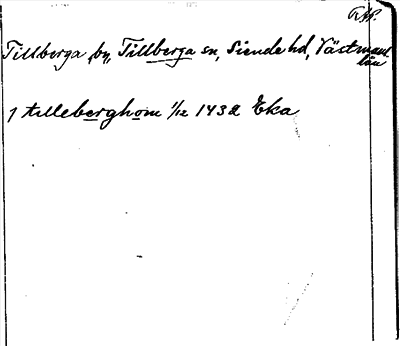 Tillberga, by, Tillberga sn, Siende hd, Västmanl
län
J tilleberghom 1/12 1432 Eka